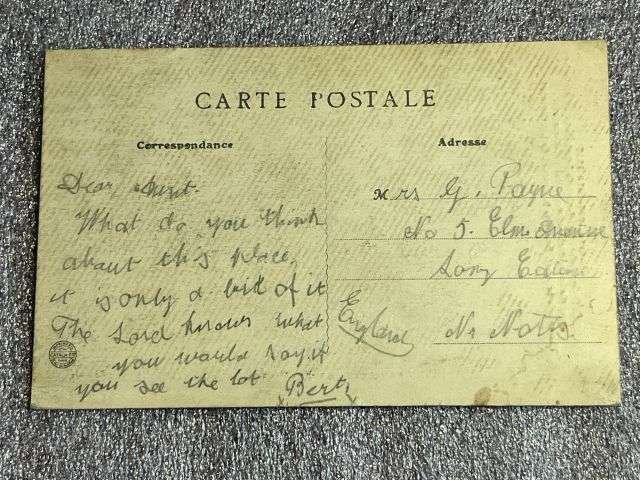 CARTE POSTALE
Correspondance
Adresse
Dear Aunt.
What do you think
about this place,
it is only a bit of it
The Lord knows what
you would say if
you see the lot Bert
Mrs G. Payne
No 5. Elm Avenue
Long Eaton
Nr Notts
England